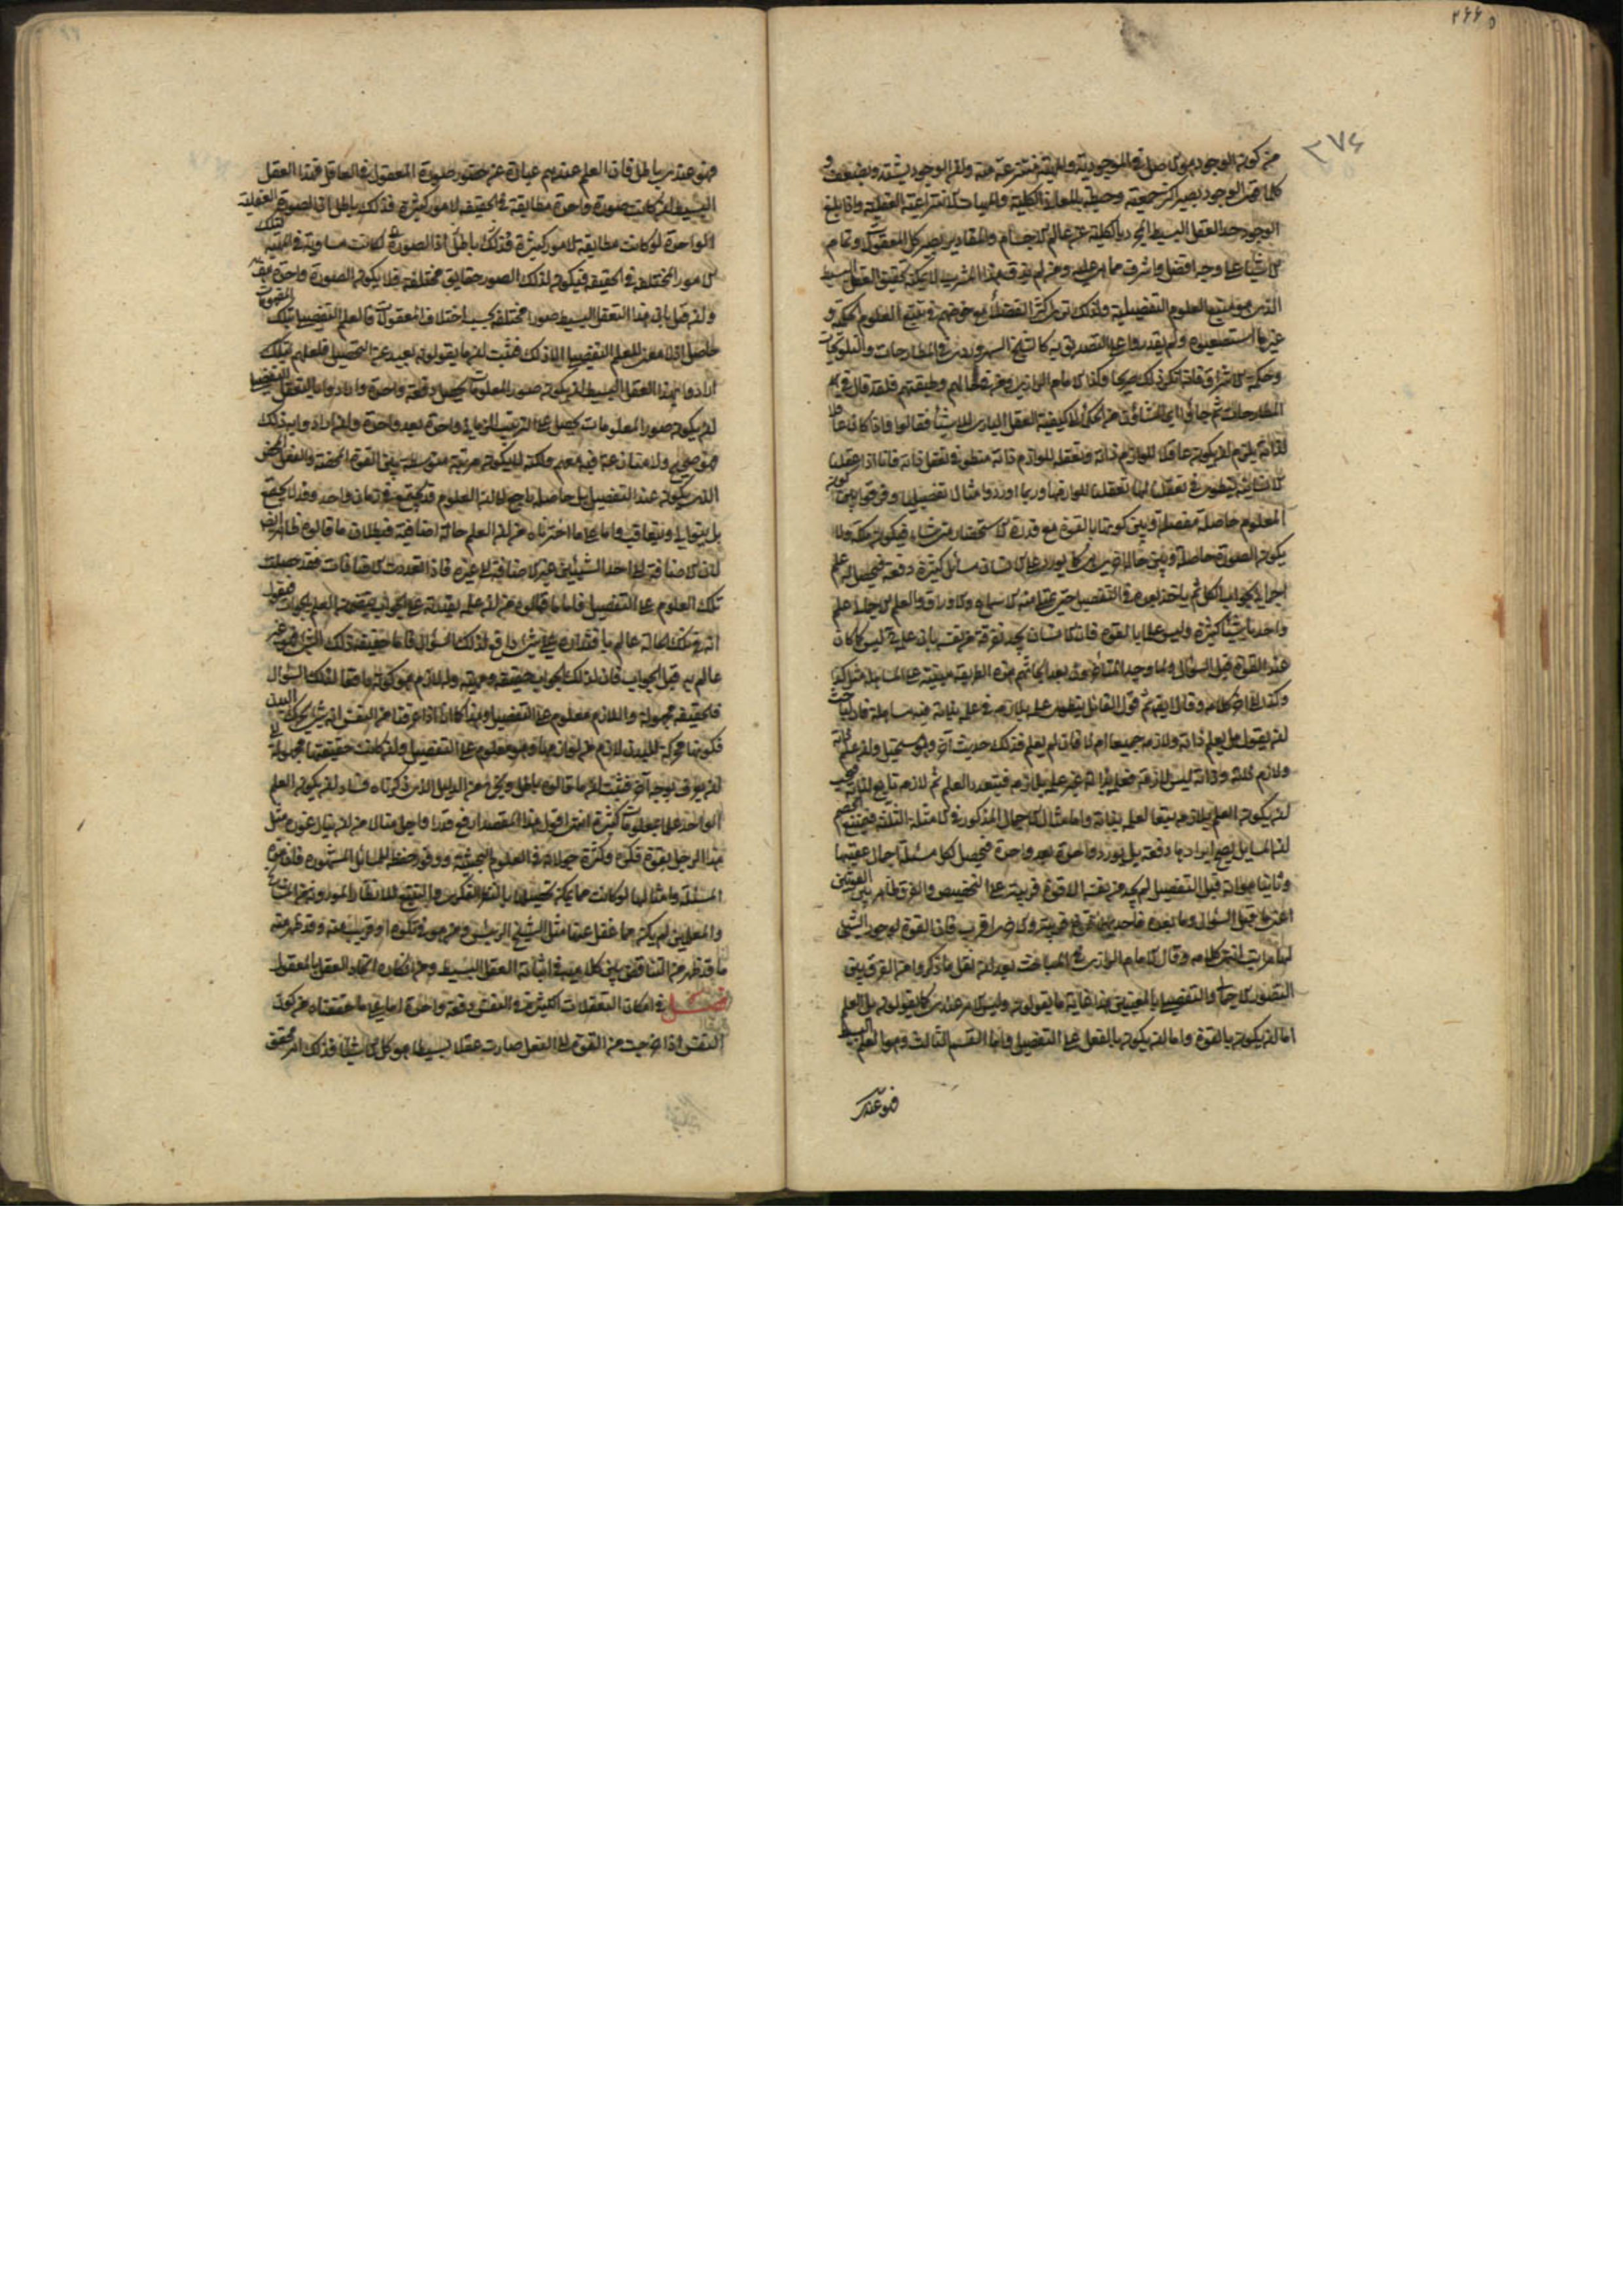 ٢٦٦
٣٧٤
من كون الوجود هو الاصل في الموجودية والمهية منتزعة منه وان الوجود يشتد ويضعف و
كلما قوى الوجود يصير اكثر جمعية وحيطة بالمعاني الكلية والمهيات الانتزاعية العقلية واذا بلغ
الوجود حد العقل البسيط المجرد بالكلية عن عالم الاجسام والمقادير يصير كل المعقولات وتمام
الاشياء على وجه افضل واشرف مما هي عليه ومن لم يذق هذا المشرب لا يمكنه تحقيق العقل البسيط
الذي هو منبع العلوم التفصيلية ولذلك ترى اكثر الفضلاء مع خوضهم في تتبع العلوم الحكمية و
غيرها استصعبوه ولم يقدروا على التصديق به كالشيخ السهروردي في المطارحات والتلويحات
وحكمة الاشراق فانه انكر ذلك صريحا وكذا الامام الرازي ومن في حالهم وطبقتهم فلقد قال في
المطارحات ثم جاؤا اي المشاؤون من الحكماء الى كيفية العقل الباري للاشياء فقالوا فاذا كان عاقلا
لذاته يلزم ان يكون عاقلا للوازم ذاته وتعقله للوازم ذاته منطو في تعقل ذاته فانا اذا عقلنا
الانسانية ينطوي في تعقلنا لها تعقلنا للوازمها وربما اوردوا مثالا تفصيليا وفرقوا بين كون
المعلوم حاصلة مفصلة وبين كونها بالقوة مع قدرة الاستحضار متى شاء فيكون ملكة ولا
يكون الصورة حاصلة وبين حالة اخرى كما يورد على الانسان مسائل كثيرة دفعة فيحصل له علم
اجمالي بجواب الكل ثم ياخذ بعده في التفصيل حتى يمتلئ منه الاسماع والاوراق والعلم الاجمالي علم
واحد باشياء كثيرة وليس علما بالقوة فان الانسان يجد تفرقة من نفسه بان علمه ليس كما كان
عند القوة قبل السؤال ولما وجد المتاخرون بعد ابحاثهم هذه الطريقة مبتنية على المساهلة
وكذا الى اخر كلامه وقال ايضا ثم قول القائل ينطوي علمه بلازمه في علمه بذاته فيه مساهلة فلباحث
ان يقول هل يعلم ذاته ولازمه جميعا ام لا فان لم يعلم فذلك حديث آخر وهو مستحيل وان علم ذاته
ولازم ذاته وذاته ليس لازمه فعلمه بذاته غير علمه بلازمه فيتعدد العلم ثم لازمه تابع لذاته فيجب
ان يكون العلم بلازمه تبعا لعلمه بذاته واما مثال الاجمال المذكور في الامثلة الثلاثة فيمنع الخصم
ان المسايل يصح ايرادها دفعة بل يورد واحدة بعد واحدة فيحصل لكل مسئلة اجمال عقيبها
وثانيها هو انه قبل التفصيل لم يجد من نفسه الا قوة قريبة على التخصيص والفرق ظاهر بين القوتين
اعني ما قبل السؤال وما بعده فاحديهما قوة قريبة والاخرى اقرب فان القوة لوجود الشيء
لها مراتب انتهى كلامه وقال الامام الرازي في المباحث بعد ان نقل ما ذكروا من الفرق بين
التعقل الاجمالي والتفصيلي بالمعنيين هذا غاية ما يقولونه وليس الامر عندي كما يقولونه بل العلم
اما ان يكون بالقوة واما ان يكون بالفعل على التفصيل واما القسم الثالث وهو العلم البسيط
فهو عندي
فهو عندي باطل فان العلم عندهم عبارة عن حضور صورة المعقول في العاقل فهذا العقل
البسيط ان كانت صورة واحدة مطابقة في الحقيقة لامور كثيرة فذلك باطل اذ الصورة العقلية
الواحدة لو كانت مطابقة لامور كثيرة فذلك باطل اذ الصورة لكانت مساوية في المهية لتلك
الامور المختلفة في الحقيقة فيكون لتلك الصور حقايق مختلفة فلا يكون الصورة واحدة هف
وان قيل بان هذا التعقل البسيط صورا مختلفة بحسب اختلاف المعقولات فالعلم التفصيلي بتلك المعقولات
حاصل اذ لا معنى للعلم التفصيلي الا ذلك فثبت ان ما يقولونه بعيد عن التحصيل فلعلهم
ارادوا بهذا العقل البسيط ان يكون صور المعلومات يحصل دفعة واحدة وارادوا بالتعقل التفصيلي
ان يكون صور المعلومات يحصل على الترتيب الزماني واحدة بعد واحدة وان ارادوا به ذلك
فهو صحيح ولا منازعة فيه معهم ولكنه لا يكون مرتبة متوسطة بين القوة المحضة والفعل المحض
الذي يكون عند التفصيل بل حاصله راجع الى ان العلوم قد يجتمع في زمان واحد وقد لا يجتمع
بل يتوالى ويتعاقب واما على ما اخترناه من ان العلم حالة اضافية فبطلان ما قالوه ظاهر ايضا
لان الاضافة الى احد الشيئين غير الاضافة الى غيره فاذا تعددت الاضافات فقد حصلت
تلك العلوم على التفصيل فاما ما قالوه من ان علمه بقدرته على الجواب يتضمن العلم بالجواب فنقول
انه في تلك الحالة عالم باقتداره على شيء دافع لذلك السؤال فاما حقيقة ذلك الشيء فهو غير
عالم به قبل الجواب فان لذلك الجواب حقيقة ومهية وله لازم وهو كونه دافعا لذلك السؤال
فالحقيقة مجهولة واللازم معلوم على التفصيل وهذا كما انا اذا عرفنا من النفس انها شيء يحرك البدن
فكونها محركة للبدن لازم من لوازمها وهو معلوم على التفصيل وان كانت حقيقتها مجهولة الى
ان يعرف بوجه آخر فثبت ان ما قالوه باطل ويخرج من الدليل الذي ذكرناه فساد ان يكون العلم
الواحد علما بمعلومات كثيرة انتهى اقول هذا المقصد ارفع قدرا واجل منالا من ان يناله غور مثل
هذا الرجل بقوة فكره وكثرة جولانه في العلوم البحثية ووفور حفظه للمسائل المشهورة فان هذه
المسئلة وامثالها لو كانت مما يمكن تحصيلها بالنظر الفكري والتتبع للانظار الموروثة من المشايخ
والمعلمين لم يكن مما غفل عنها مثل الشيخ الرئيس ومن هو في تلوه او قريب منه وقد ظهر منه
ما قد ظهر من التناقض بين كلاميه في اثبات العقل البسيط ومن انكاره اتحاد العقل بالمعقول
فصل في امكان التعقلات الكثيرة في النفس دفعة واحدة اما على ما حققناه من كون
النفس اذا خرجت من القوة الى الفعل صارت عقلا بسيطا هو كل الاشياء فذلك امر محقق